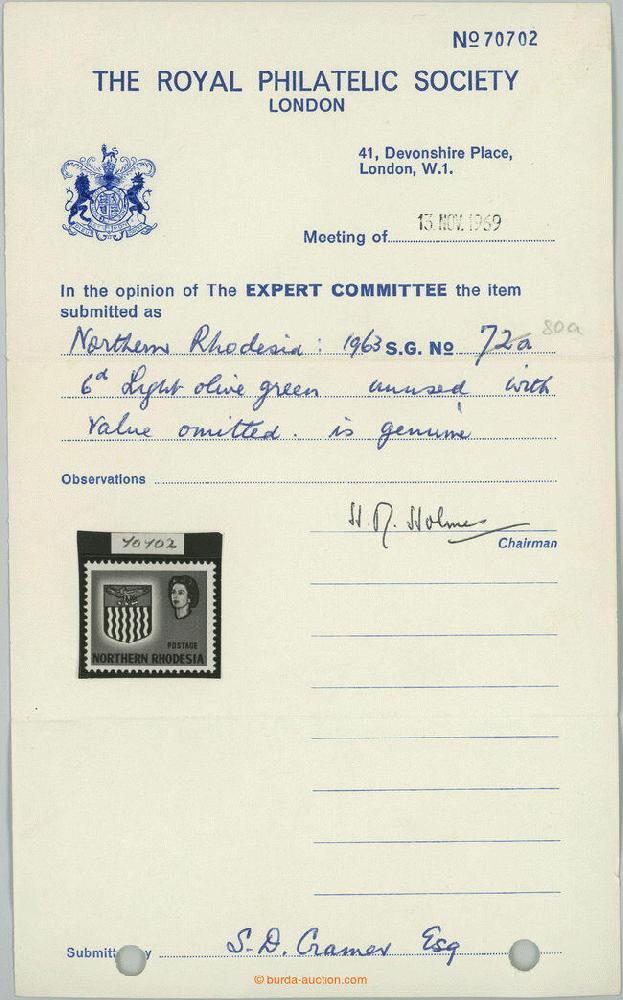 Nº 70702
THE ROYAL PHILATELIC SOCIETY
LONDON
41, Devonshire Place,
London, W.1.
Meeting of 13. NOV. 1969
In the opinion of The EXPERT COMMITTEE the item
submitted as
Northern Rhodesia : 1963 S.G. Nº 72a 80a
6d Light olive green unused with
Value omitted. is genuine
Observations
H R. Holmes
Chairman
70702
POSTAGE
NORTHERN RHODESIA
S. D. Cramer Esq
© burda-auction.com